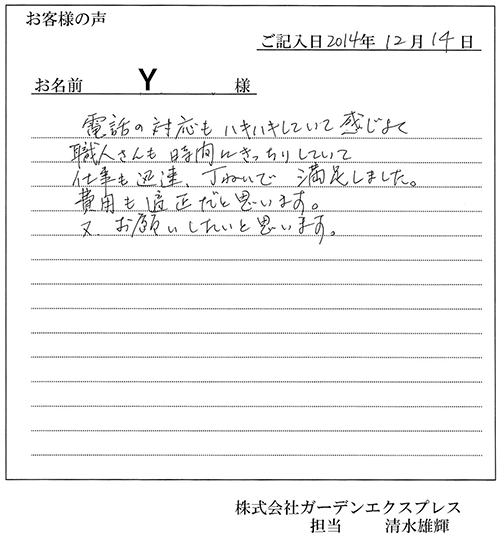 お客様の声
ご記入日2014年 12月 14日
お名前 Y 様
電話の対応もハキハキしていて感じよく
職人さんも時間にきっちりしていて
仕事も迅速、丁ねいで 満足しました。
費用も適正だと思います。
又、お願いしたいと思います。
株式会社ガーデンエクスプレス
担当 清水雄輝